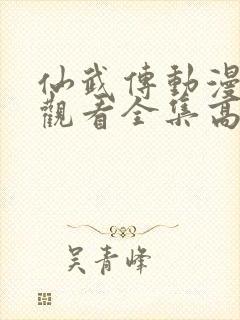 仙武傳動漫
觀看全集高
吴青峰